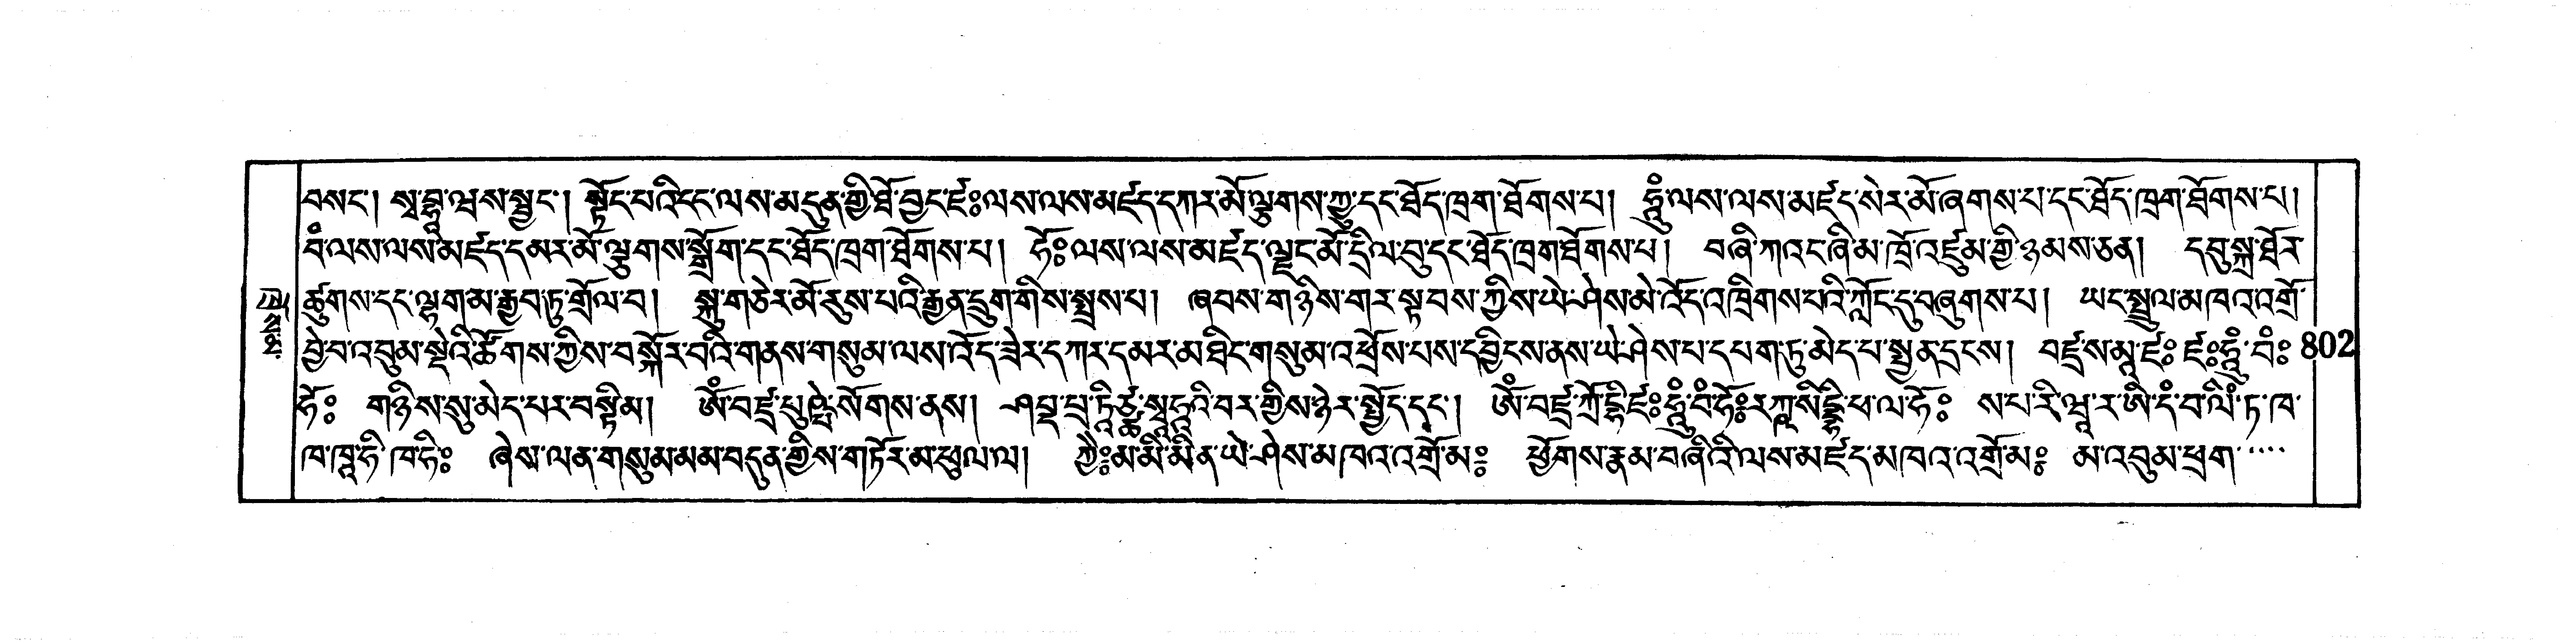 བསང༌། སྭ་བྷཱ་ཝས་སྦྱང༌། སྟོང་པའི་ངང་ལས་མདུན་གྱི་ཐོ་བྱང་ཛཿལས་ལས་མཛད་དཀར་མོ་ལྕགས་ཀྱུ་དང་ཐོད་ཁྲག་ཐོགས་པ། ཧཱུྃ་ལས་ལས་མཛད་སེར་མོ་ཞགས་པ་དང་ཐོད་ཁྲག་ཐོགས་པ།
བཾ་ལས་ལས་མཛད་དམར་མོ་ལྕགས་སྒྲོག་དང་ཐོད་ཁྲག་ཐོགས་པ། ཧོཿལས་ལས་མཛད་ལྗང་མོ་དྲིལ་བུ་དང་ཐོད་ཁྲག་ཐོགས་པ། བཞི་ཀའང་ཞི་མ་ཁྲོ་འཛུམ་གྱི་ཉམས་ཅན། དབུ་སྐྲ་ཐོར་
ཚུགས་དང་ལྷག་མ་རྒྱབ་ཏུ་གྲོལ་བ། སྐུ་གཅེར་མོ་རུས་པའི་རྒྱན་དྲུག་གིས་སྤྲས་པ། ཞབས་གཉིས་གར་སྟབས་ཀྱིས་ཡེ་ཤེས་མེ་འོད་འཁྲིགས་པའི་ཀློང་དུ་བཞུགས་པ། ཡང་སྤྲུལ་མཁའ་འགྲོ་
བྱེ་བ་འབུམ་སྡེའི་ཚོགས་ཀྱིས་བསྐོར་བའི་གནས་གསུམ་ལས་འོད་ཟེར་དཀར་དམར་མཐིང་གསུམ་འཕྲོས་པས་དབྱིངས་ནས་ཡེ་ཤེས་པ་དཔག་ཏུ་མེད་པ་སྤྱན་དྲངས། བཛྲ་ས་མཱ་ཛཿ ཛཿཧཱུྃ་བཾཿ 802
ཧོཿ གཉིས་སུ་མེད་པར་བསྟིམ། ཨོཾ་བཛྲ་པུཥྤེ་སོགས་ནས། ཤབྡ་པྲ་ཏཱི་ཙྪ་སྭཱཧཱའི་བར་གྱིས་ཉེར་སྤྱོད་དང༌། ཨོཾ་བཛྲ་ཀྲོ་དྷི་ཛཿཧཱུྃ་བཾ་ཧོཿརཀྵ་སིདྡྷི་ཕ་ལ་ཧོཿ ས་པ་རི་ཝཱ་ར་ཨི་དཾ་བ་ལིཾ་ཏ་ཁ་
ཁ་ཁཱ་ཧི་ཁཱ་ཧིཿ ཞེས་ལན་གསུམ་མམ་བདུན་གྱིས་གཏོར་མ་ཕུལ་ལ། ཀྱེཿམ་མི་མིན་ཡེ་ཤེས་མཁའ་འགྲོ་མཿ ཕྱོགས་རྣམ་བཞིའི་ལས་མཛད་མཁའ་འགྲོ་མཿ མ་འབུམ་ཕྲག་....